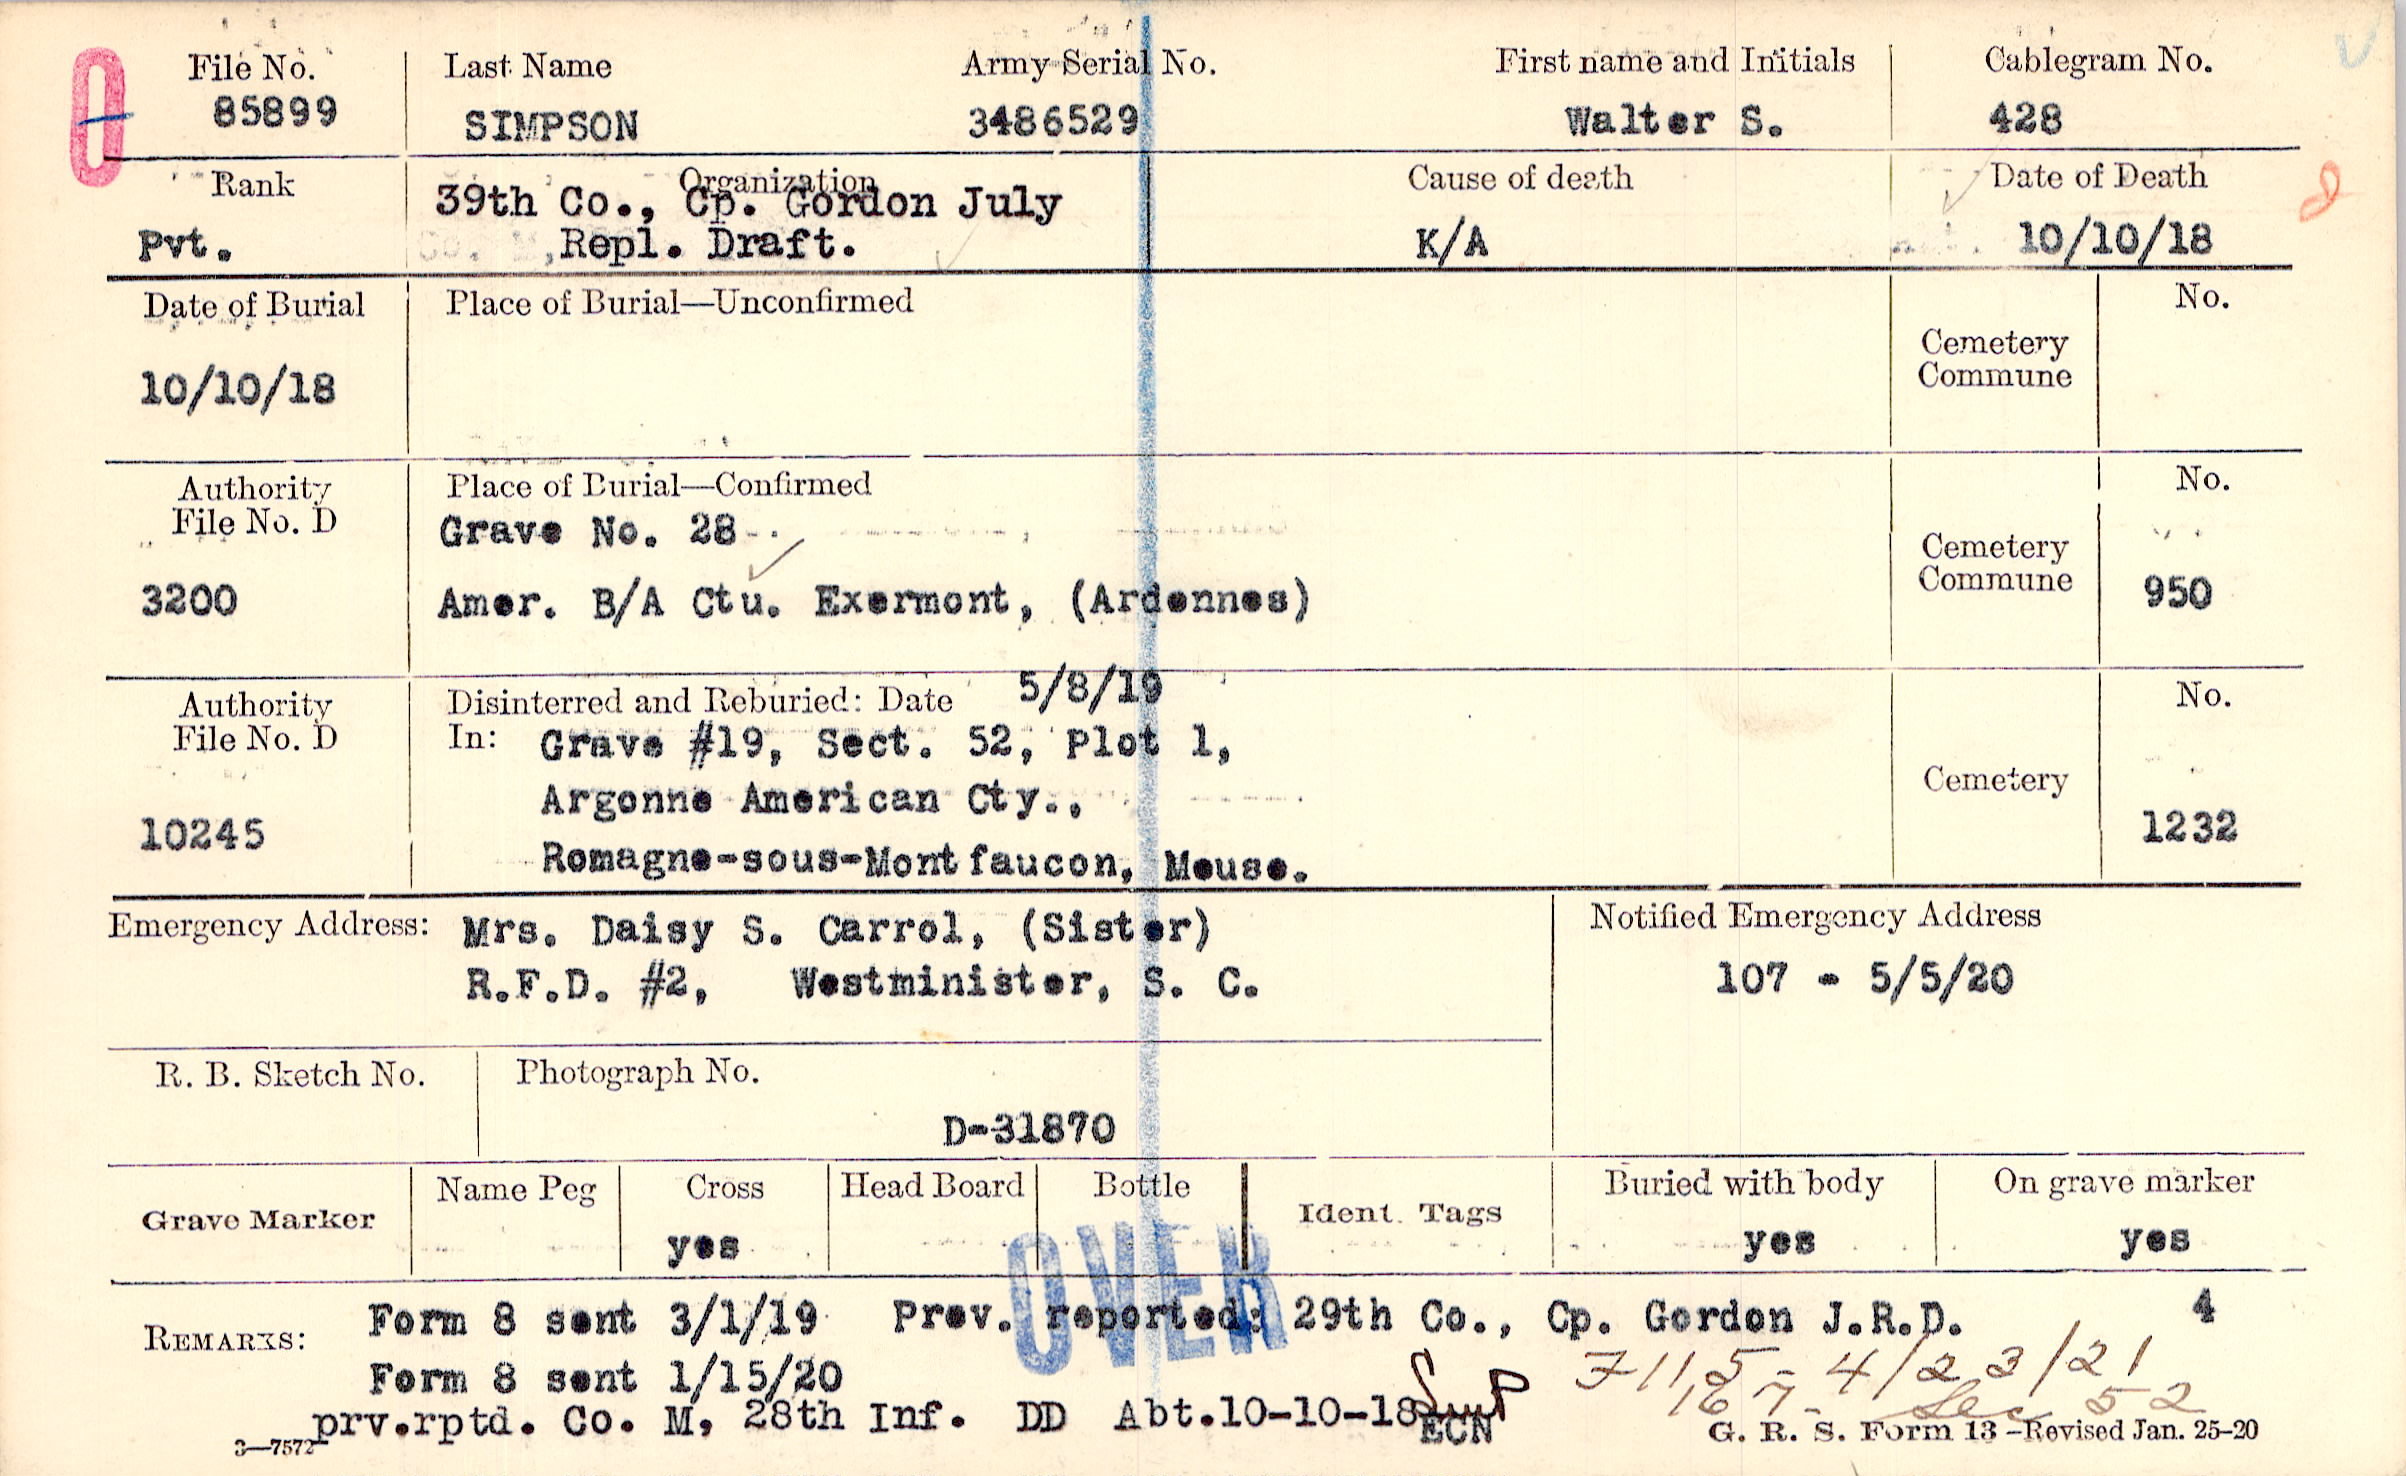 0
File No. Last Name Army Serial No. First name and Initials Cablegram No.
85899 SIMPSON 3486529 Walter S. 428
Rank Organization Cause of death Date of Death
39th Co., Cp. Gordon July
Pvt. Repl. Draft. K/A 10/10/18
Date of Burial Place of Burial—Unconfirmed No.
Cemetery
Commune
10/10/18
Authority Place of Burial—Confirmed No.
File No. D Grave No. 28
Cemetery
Commune
3200 Amer. B/A Ctu. Exermont, (Ardennes) 950
Authority Disinterred and Reburied: Date 5/8/19 No.
File No. D In: Grave #19, Sect. 52, Plot 1,
Argonne American Cty., Cemetery
10245 1232
Romagne-sous-Montfaucon, Meuse.
Emergency Address: Mrs. Daisy S. Carrol, (Sister) Notified Emergency Address
R.F.D. #2, Westminister, S. C. 107 - 5/5/20
R. B. Sketch No. Photograph No.
D-31870
Grave Marker Name Peg Cross Head Board Bottle Ident. Tags Buried with body On grave marker
yes yes yes
OVER
REMARKS: Form 8 sent 3/1/19 Prev. reported: 29th Co., Cp. Gordon J.R.D. 4
Form 8 sent 1/15/20 7115 - 4/23/21
Sec 52
prv.rptd. Co. M, 28th Inf. DD Abt.10-10-18 ECN
3—7572 G. R. S. Form 13 -Revised Jan. 25-20